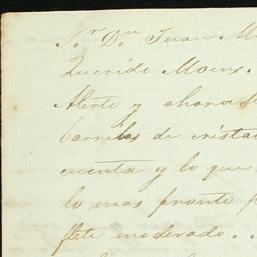 Sr. Dn. Juan M
Querido Moens.
Alerte y ahora
barriles de crista
cuenta y lo que
lo mas pronto p
flete moderado.